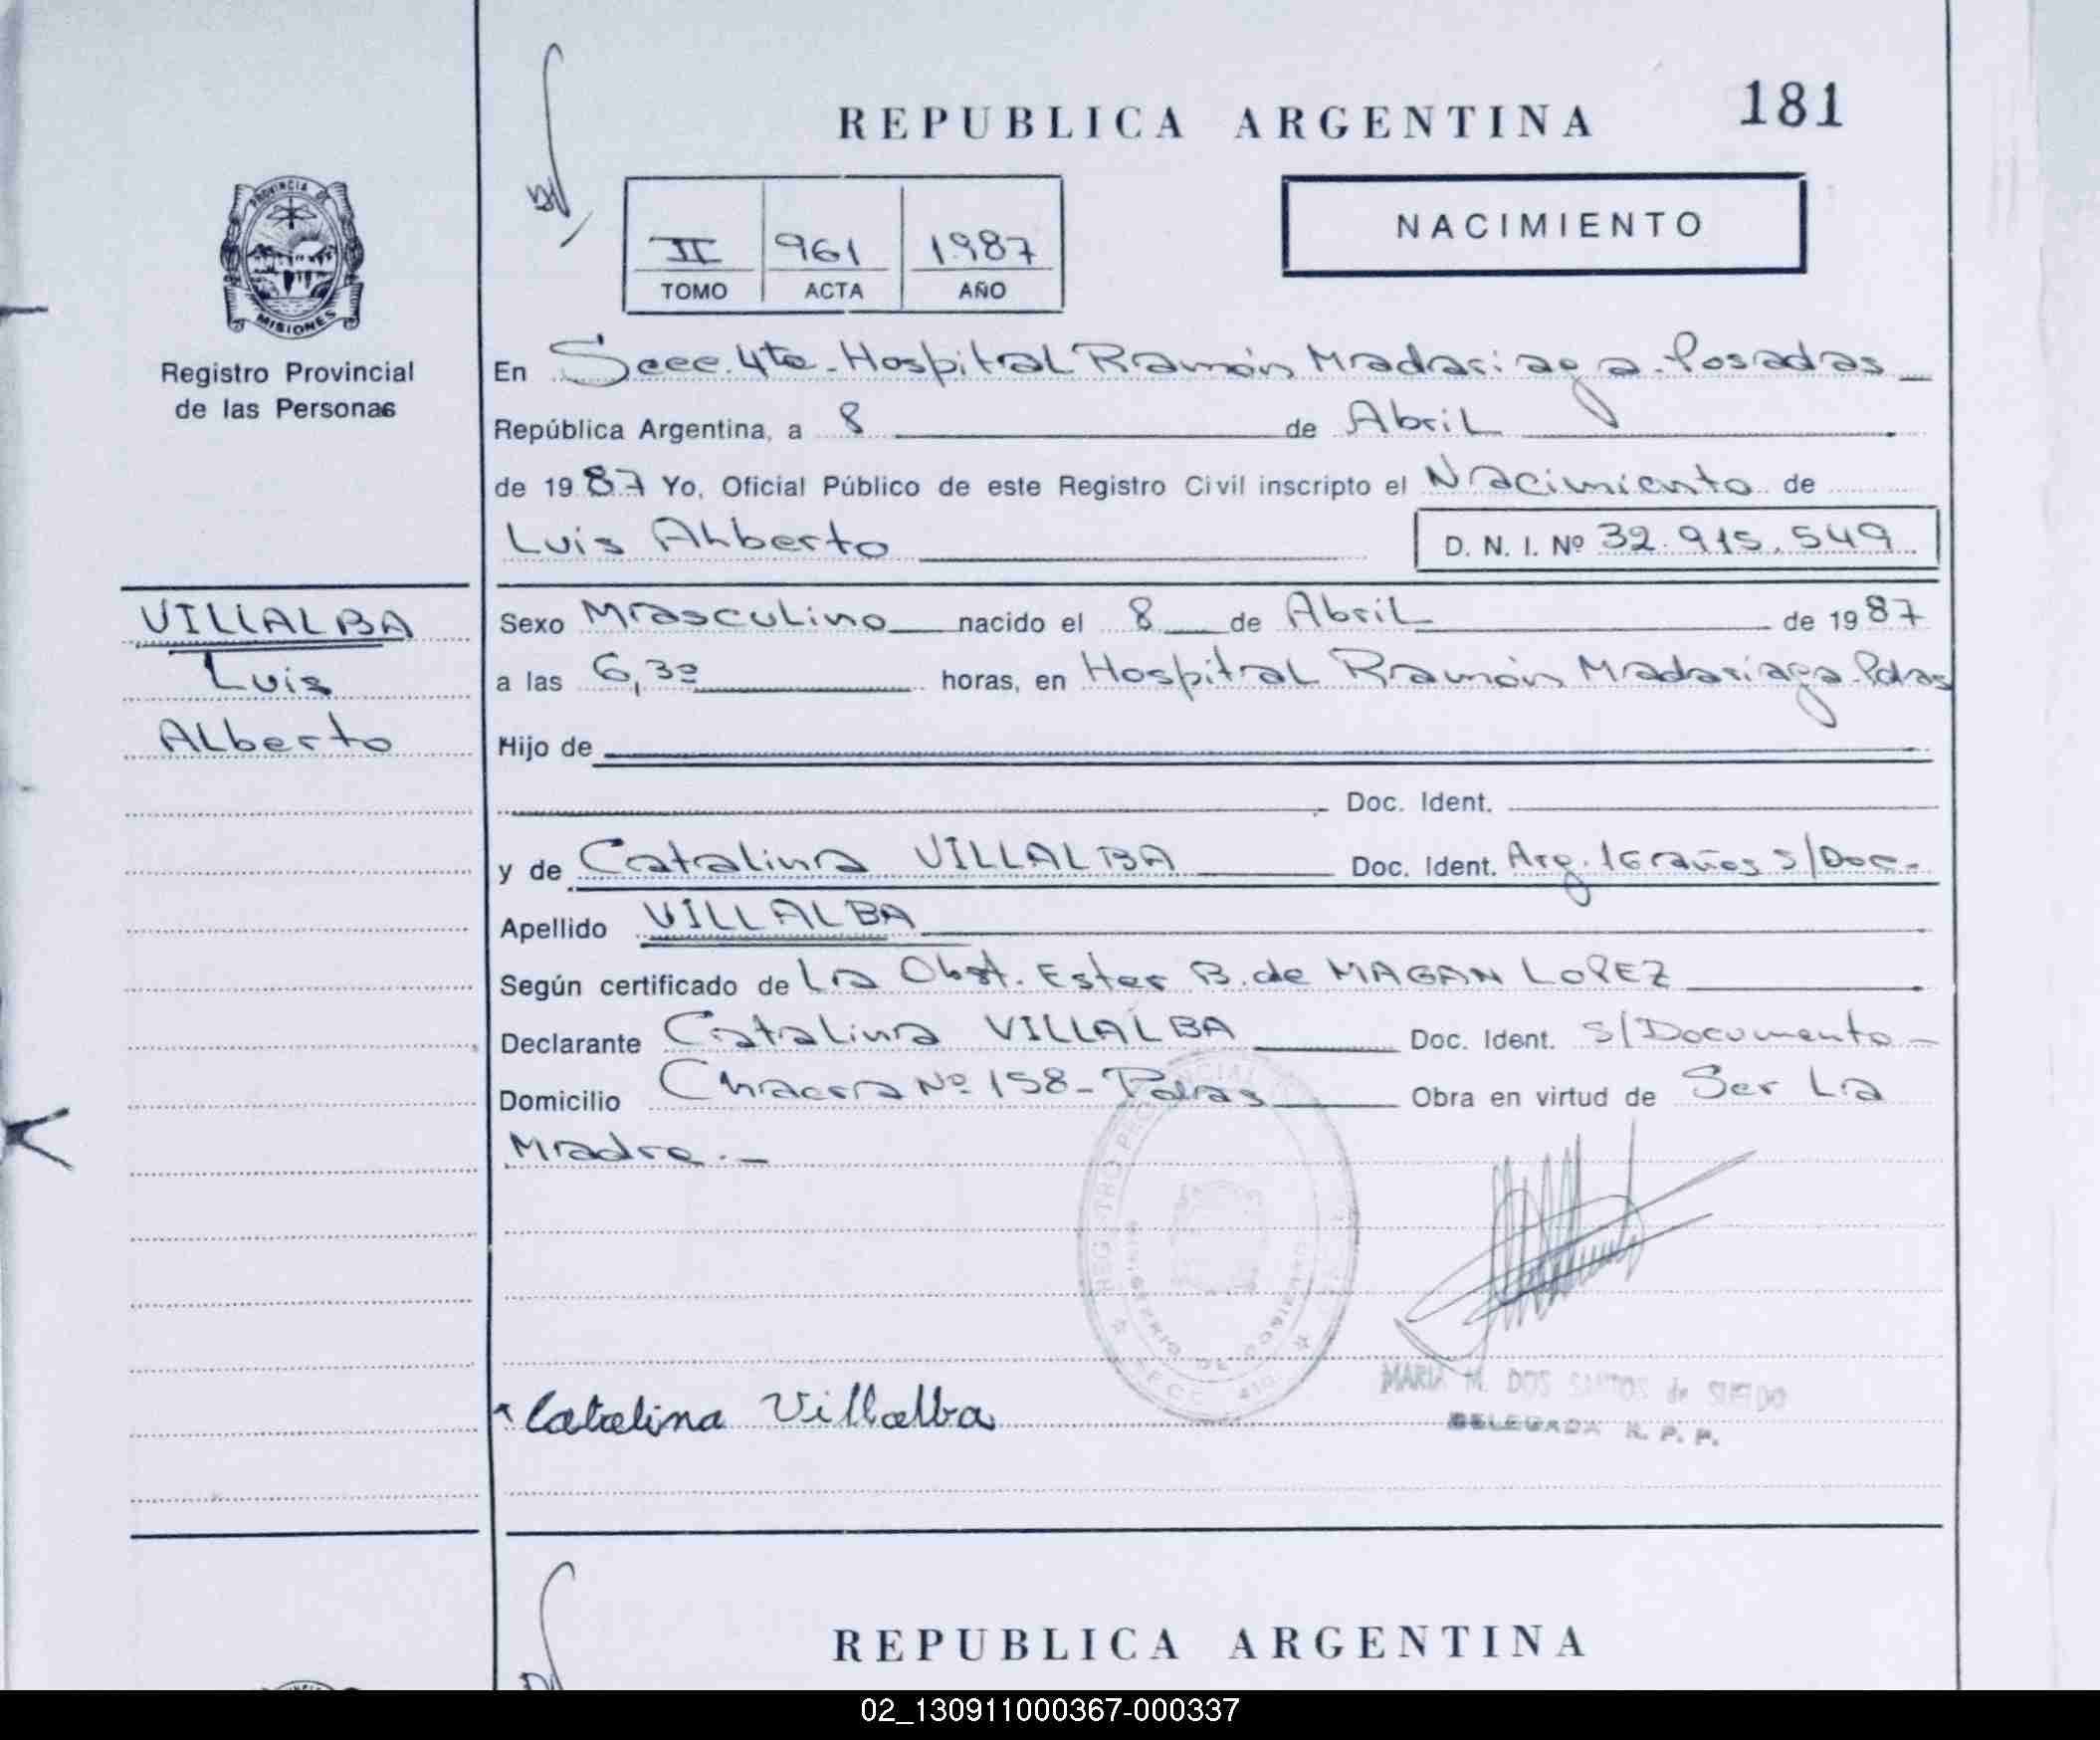 REPUBLICA ARGENTINA
181
PROVINCIA DE
MISIONES
Registro Provincial
de las Personas
II 961 1987
TOMO ACTA AÑO
NACIMIENTO
En Secc. 4ta. Hospital Ramón Madariaga. Posadas
República Argentina, a 8 de Abril
de 1987 Yo, Oficial Público de este Registro Civil inscripto el Nacimiento de
Luis Alberto D. N. I. Nº 32.915.549
VILLALBA
Luis
Alberto
Sexo Masculino nacido el 8 de Abril de 1987
a las 6,30 horas, en Hospital Ramón Madariaga. Pdas
Hijo de
Doc. Ident.
y de Catalina VILLALBA Doc. Ident. Arg. 16 años s/Doc.-
Apellido VILLALBA
Según certificado de La Obst. Ester B. de MAGAN LOPEZ
Declarante Catalina VILLALBA Doc. Ident. s/Documento-
Domicilio Chacra Nº 158- Pdas Obra en virtud de Ser La
Madre.-
Catalina Villalba
MARIA M. DOS SANTOS de
DELEGADA R. P. P.
REPUBLICA ARGENTINA
02_130911000367-000337